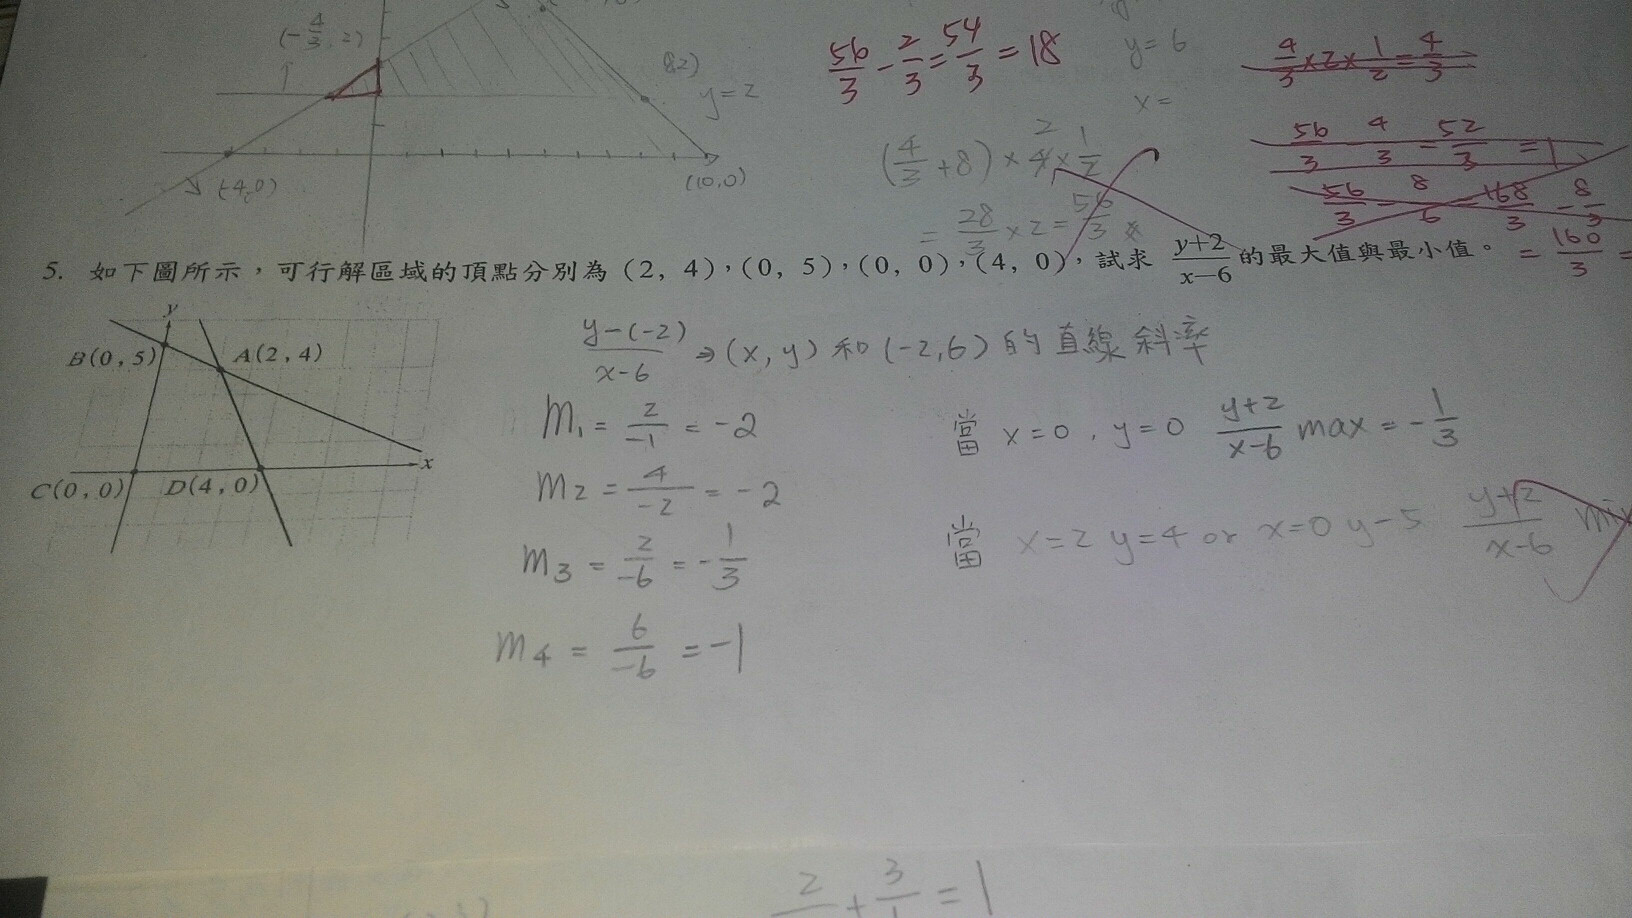 (-4/3, 2)
y=2
(-4,0)
(10,0)
56/3 - 2/3 = 54/3 = 18
y=6
x=
(4/3+8)×4×1/2
2
= 28/3 ×2= 56/3
4/3 ×2× 1/2 = 4/3
56/3 4/3 = 52/3 =
56/3 - 8/6 = 168/3 - 8/3
= 160/3 =
5. 如下圖所示,可行解區域的頂點分別為(2, 4),(0, 5),(0, 0),(4, 0),試求 y+2/x−6 的最大值與最小值。
y
B(0,5)
A(2,4)
x
C(0,0)
D(4,0)
y-(-2)/x-6 ⇒ (x,y) 和 (-2,6) 的直線斜率
m1 = 2/-1 = -2
m2 = 4/-2 = -2
m3 = 2/-6 = -1/3
m4 = 6/-6 = -1
當 x=0 , y=0 y+2/x-6 max = -1/3
當 x=2 y=4 or x=0 y-5 y+2/x-6
2/ + 3/ = 1